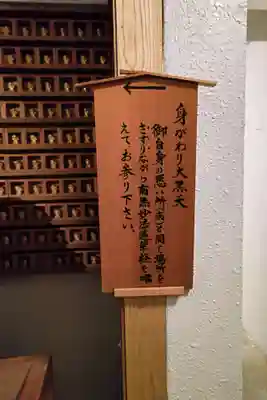 身がわり大黒天
御自身の悪い所(病)と同じ場所を
さすりながら南無妙法蓮華経を唱
えてお参り下さい。